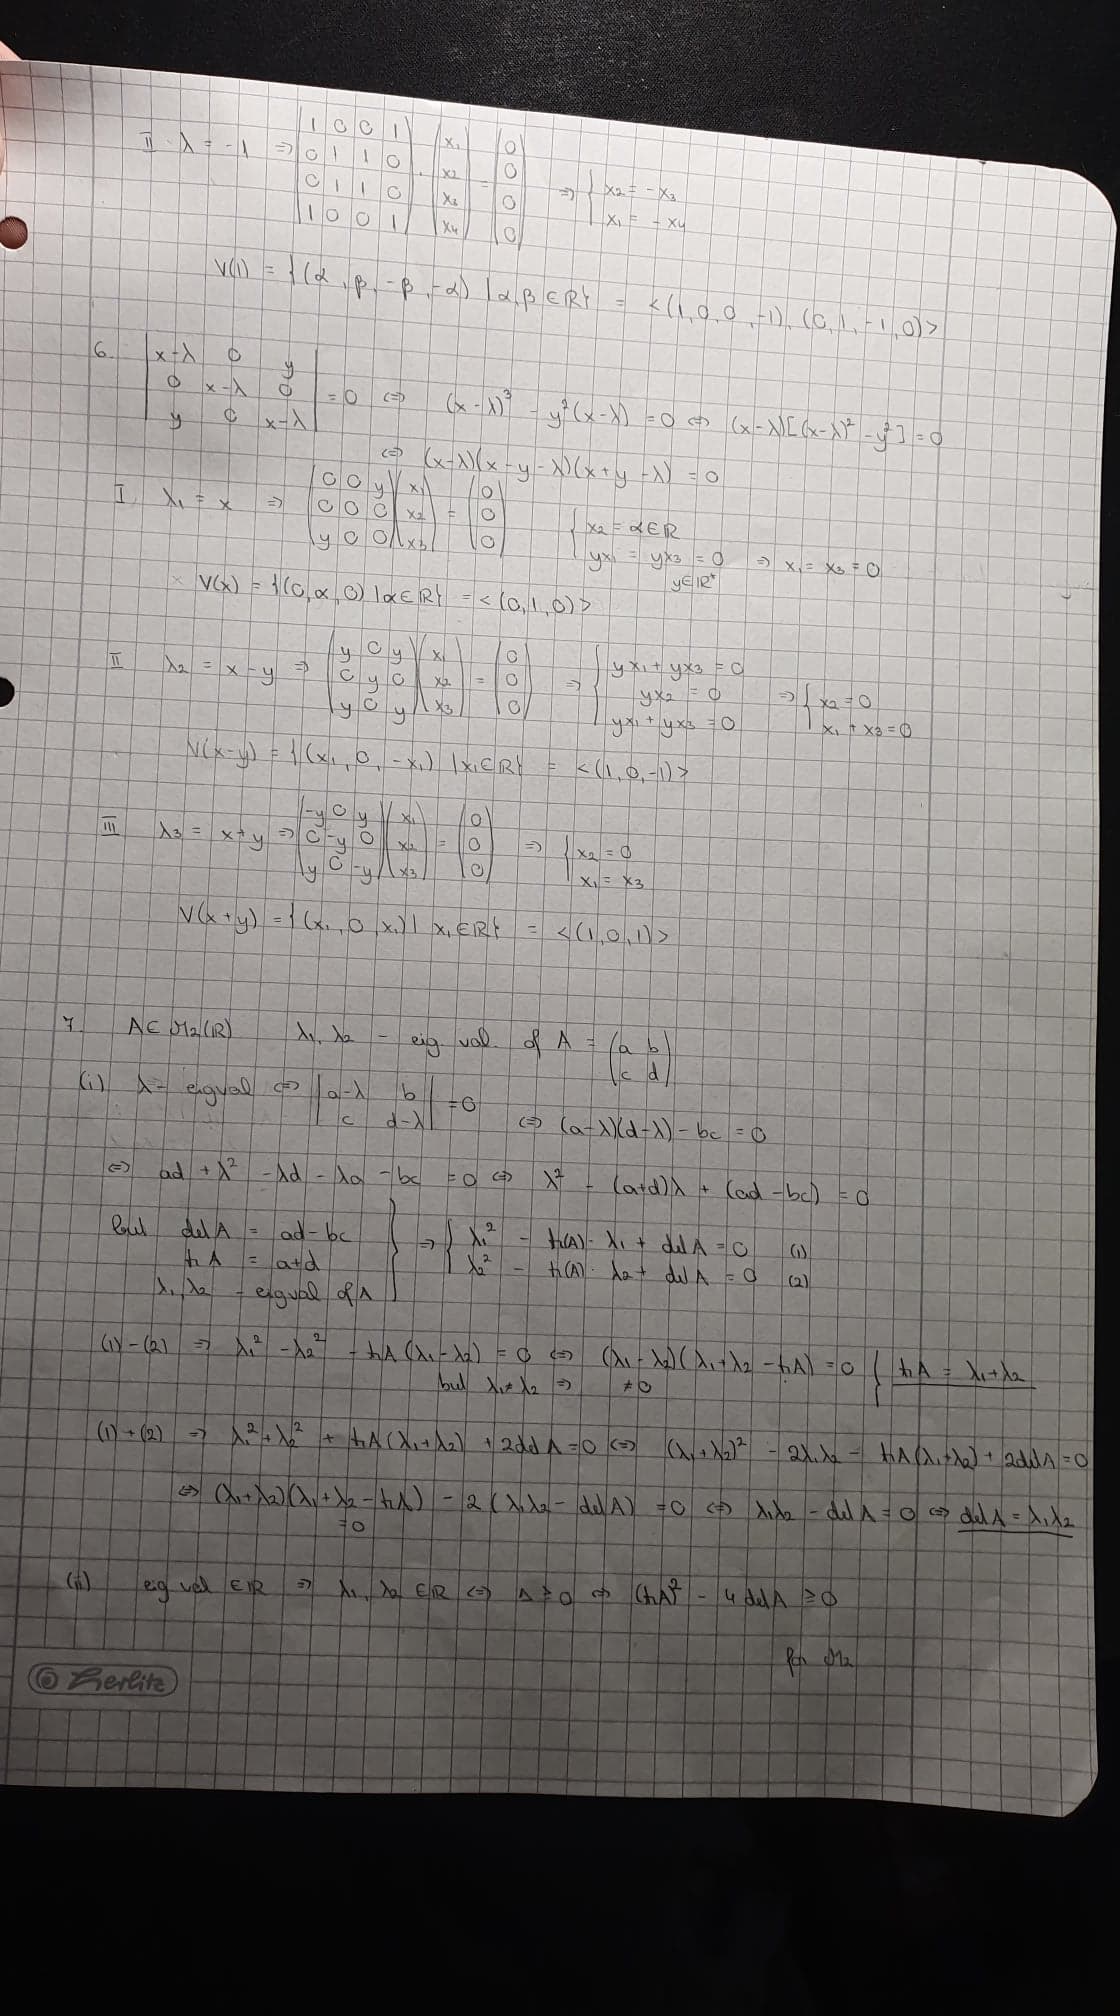 II λ = -1 => (1 0 0 1 / 0 1 1 0 / 0 1 1 0 / 1 0 0 1) · (x1 / x2 / x3 / x4) = (0 / 0 / 0 / 0) => { x2 = -x3 / x1 = -x4
V(1) = {(α, β, -β, -α) | α, β ∈ R} = <(1, 0, 0, -1), (0, 1, -1, 0)>
6. |x-λ 0 y / 0 x-λ 0 / y 0 x-λ| = 0 <=> (x-λ)³ - y²(x-λ) = 0 <=> (x-λ)[(x-λ)² - y²] = 0
<=> (x-λ)(x-y-λ)(x+y-λ) = 0
I λ1 = x => (0 0 y / 0 0 0 / y 0 0)(x1 / x2 / x3) = (0 / 0 / 0) { x2 = α ∈ R / yx1 = yx3 = 0 => x1 = x3 = 0
y ∈ R*
V(x) = {(0, α, 0) | α ∈ R} = <(0, 1, 0)>
II λ2 = x - y => (y 0 y / 0 y 0 / y 0 y)(x1 / x2 / x3) = (0 / 0 / 0) => { yx1 + yx3 = 0 / yx2 = 0 / yx1 + yx3 = 0 => { x2 = 0 / x1 + x3 = 0
V(x-y) = {(x1, 0, -x1) | x1 ∈ R} = <(1, 0, -1)>
III λ3 = x+y => (-y 0 y / 0 -y 0 / y 0 -y)(x1 / x2 / x3) = (0 / 0 / 0) => { x2 = 0 / x1 = x3
V(x+y) = {(x1, 0, x1) | x1 ∈ R} = <(1, 0, 1)>
7. A ∈ M2(R) λ1, λ2 - eig. val. of A = (a b / c d)
(i) λ - eigval <=> |a-λ b / c d-λ| = 0 <=> (a-λ)(d-λ) - bc = 0
<=> ad + λ² - λd - λa - bc = 0 <=> λ² - (a+d)λ + (ad - bc) = 0
but det A = ad - bc } => { λ1² - tr(A)· λ1 + det A = 0 (1)
tr A = a+d λ2² - tr(A)· λ2 + det A = 0 (2)
λ1, λ2 - eigval of A
(1)-(2) => λ1² - λ2² - tr A (λ1 - λ2) = 0 <=> (λ1 - λ2)(λ1 + λ2 - tr A) = 0 { tr A = λ1 + λ2
but λ1 ≠ λ2 => ≠0
(1)+(2) => λ1² + λ2² + tr A (λ1 + λ2) + 2det A = 0 <=> (λ1 + λ2)² - 2λ1λ2 - tr A(λ1 + λ2) + 2det A = 0
<=> (λ1 + λ2)(λ1 + λ2 - tr A) - 2(λ1λ2 - det A) = 0 <=> λ1λ2 - det A = 0 <=> det A = λ1λ2
=0
(ii) eig val ∈ R => λ1, λ2 ∈ R <=> Δ ≥ 0 <=> (tr A)² - 4 det A ≥ 0
for M2
Herlitz